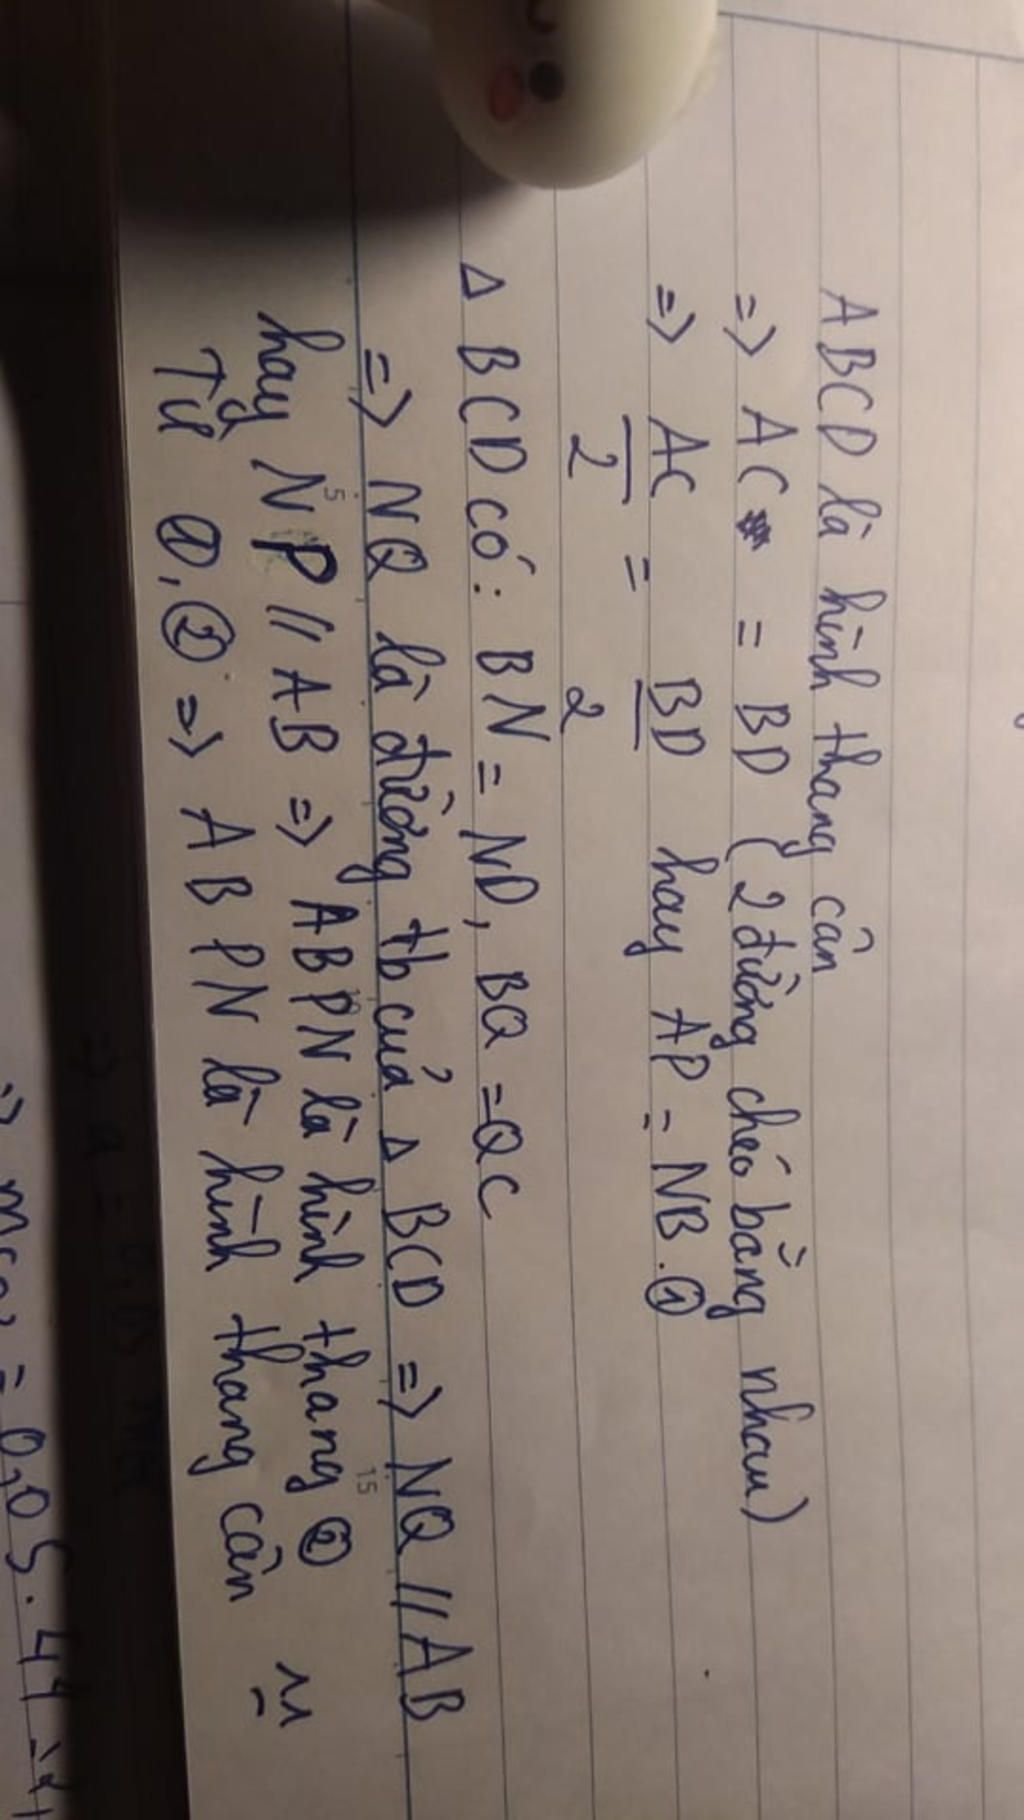 ABCD là hình thang cân
=> AC = BD (2 đường chéo bằng nhau)
=> AC/2 = BD/2 hay AP = NB. ①
Δ BCD có: BN = ND, BQ = QC
=> NQ là đường tb của Δ BCD => NQ // AB
hay NP // AB => ABPN là hình thang ②
Từ ①, ② => ABPN là hình thang cân
5
10
15